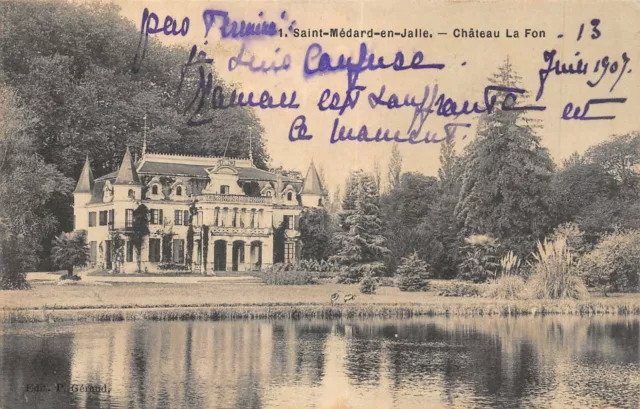 pas Terminé
1. Saint-Médard-en-Jalle. — Château La Fon
13
je suis confuse
Juin 1907
Maman est souffrante en
ce moment.
Edit. P. Géraud.